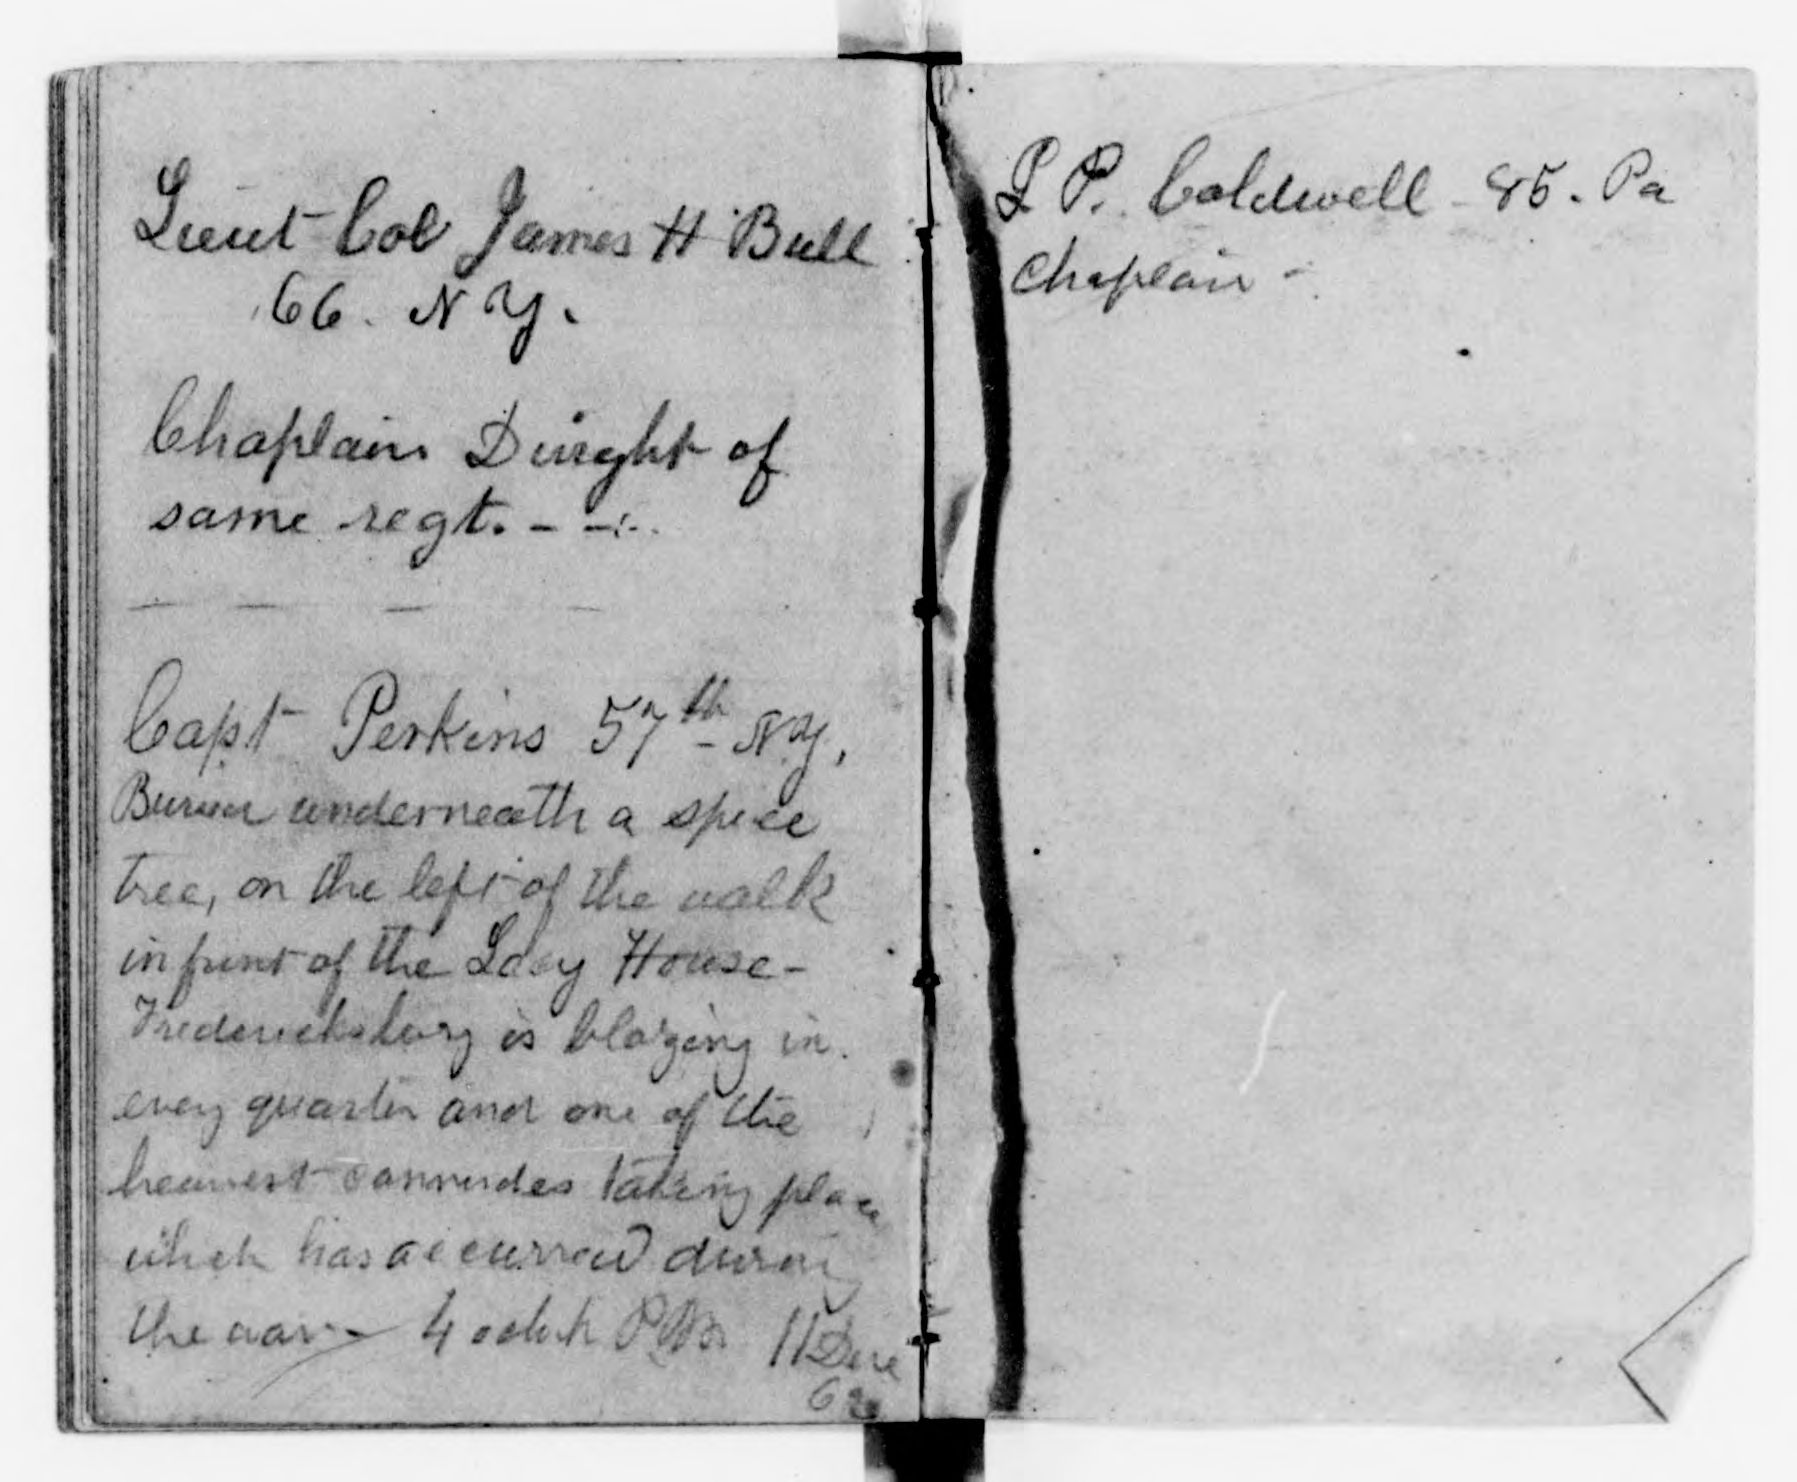 Lieut Col James H Bull
66. N Y.
Chaplain Dwight of
same regt. - -
Capt Perkins 57th NY,
Buried underneath a
tree, on the left of the walk
in front of the Lacy House -
Fredericksburg is blazing in
every quarter and one of the
heaviest cannonades taking place
which has occurred during
the war - 4 oclock P.M. 11 Dec
62
L P. Caldwell - 85. Pa
Chaplain -